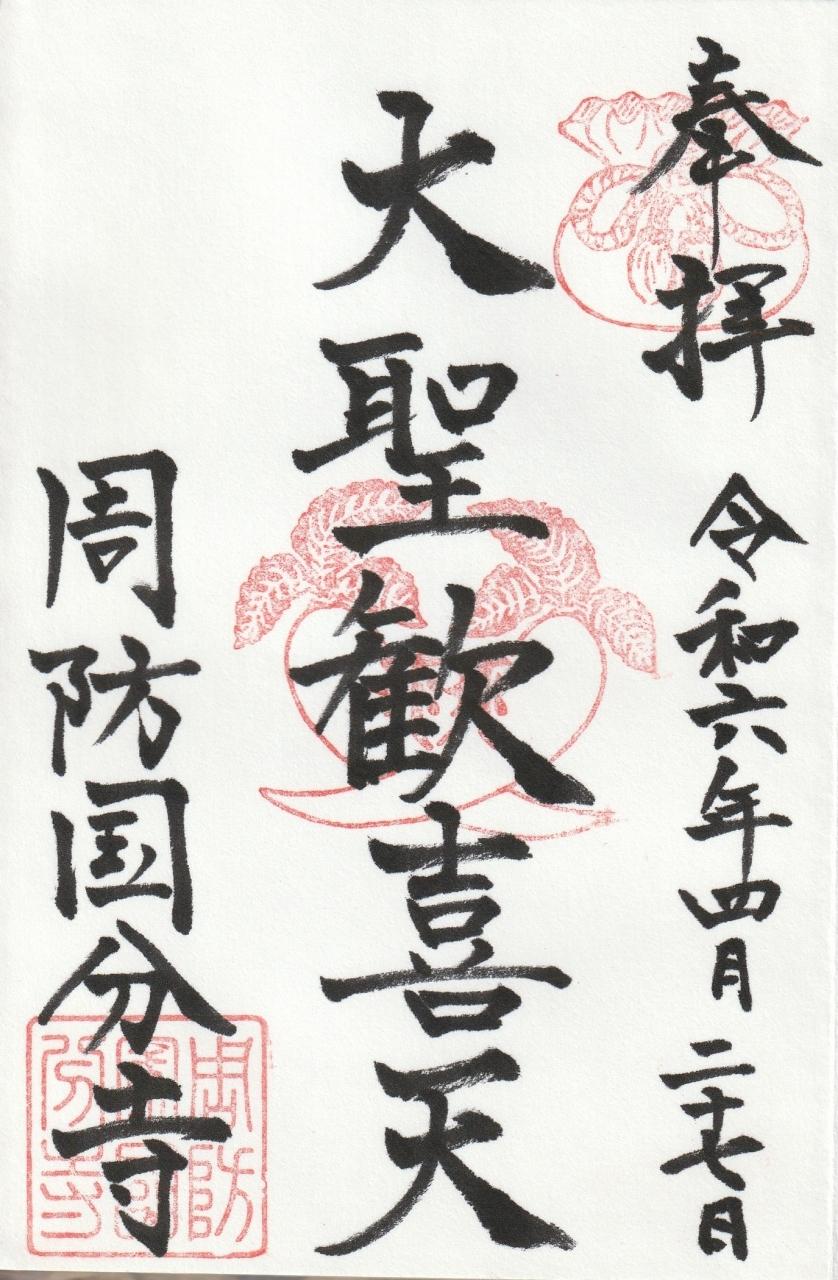 奉拝 令和六年四月二十七日
大聖歓喜天
周防国分寺